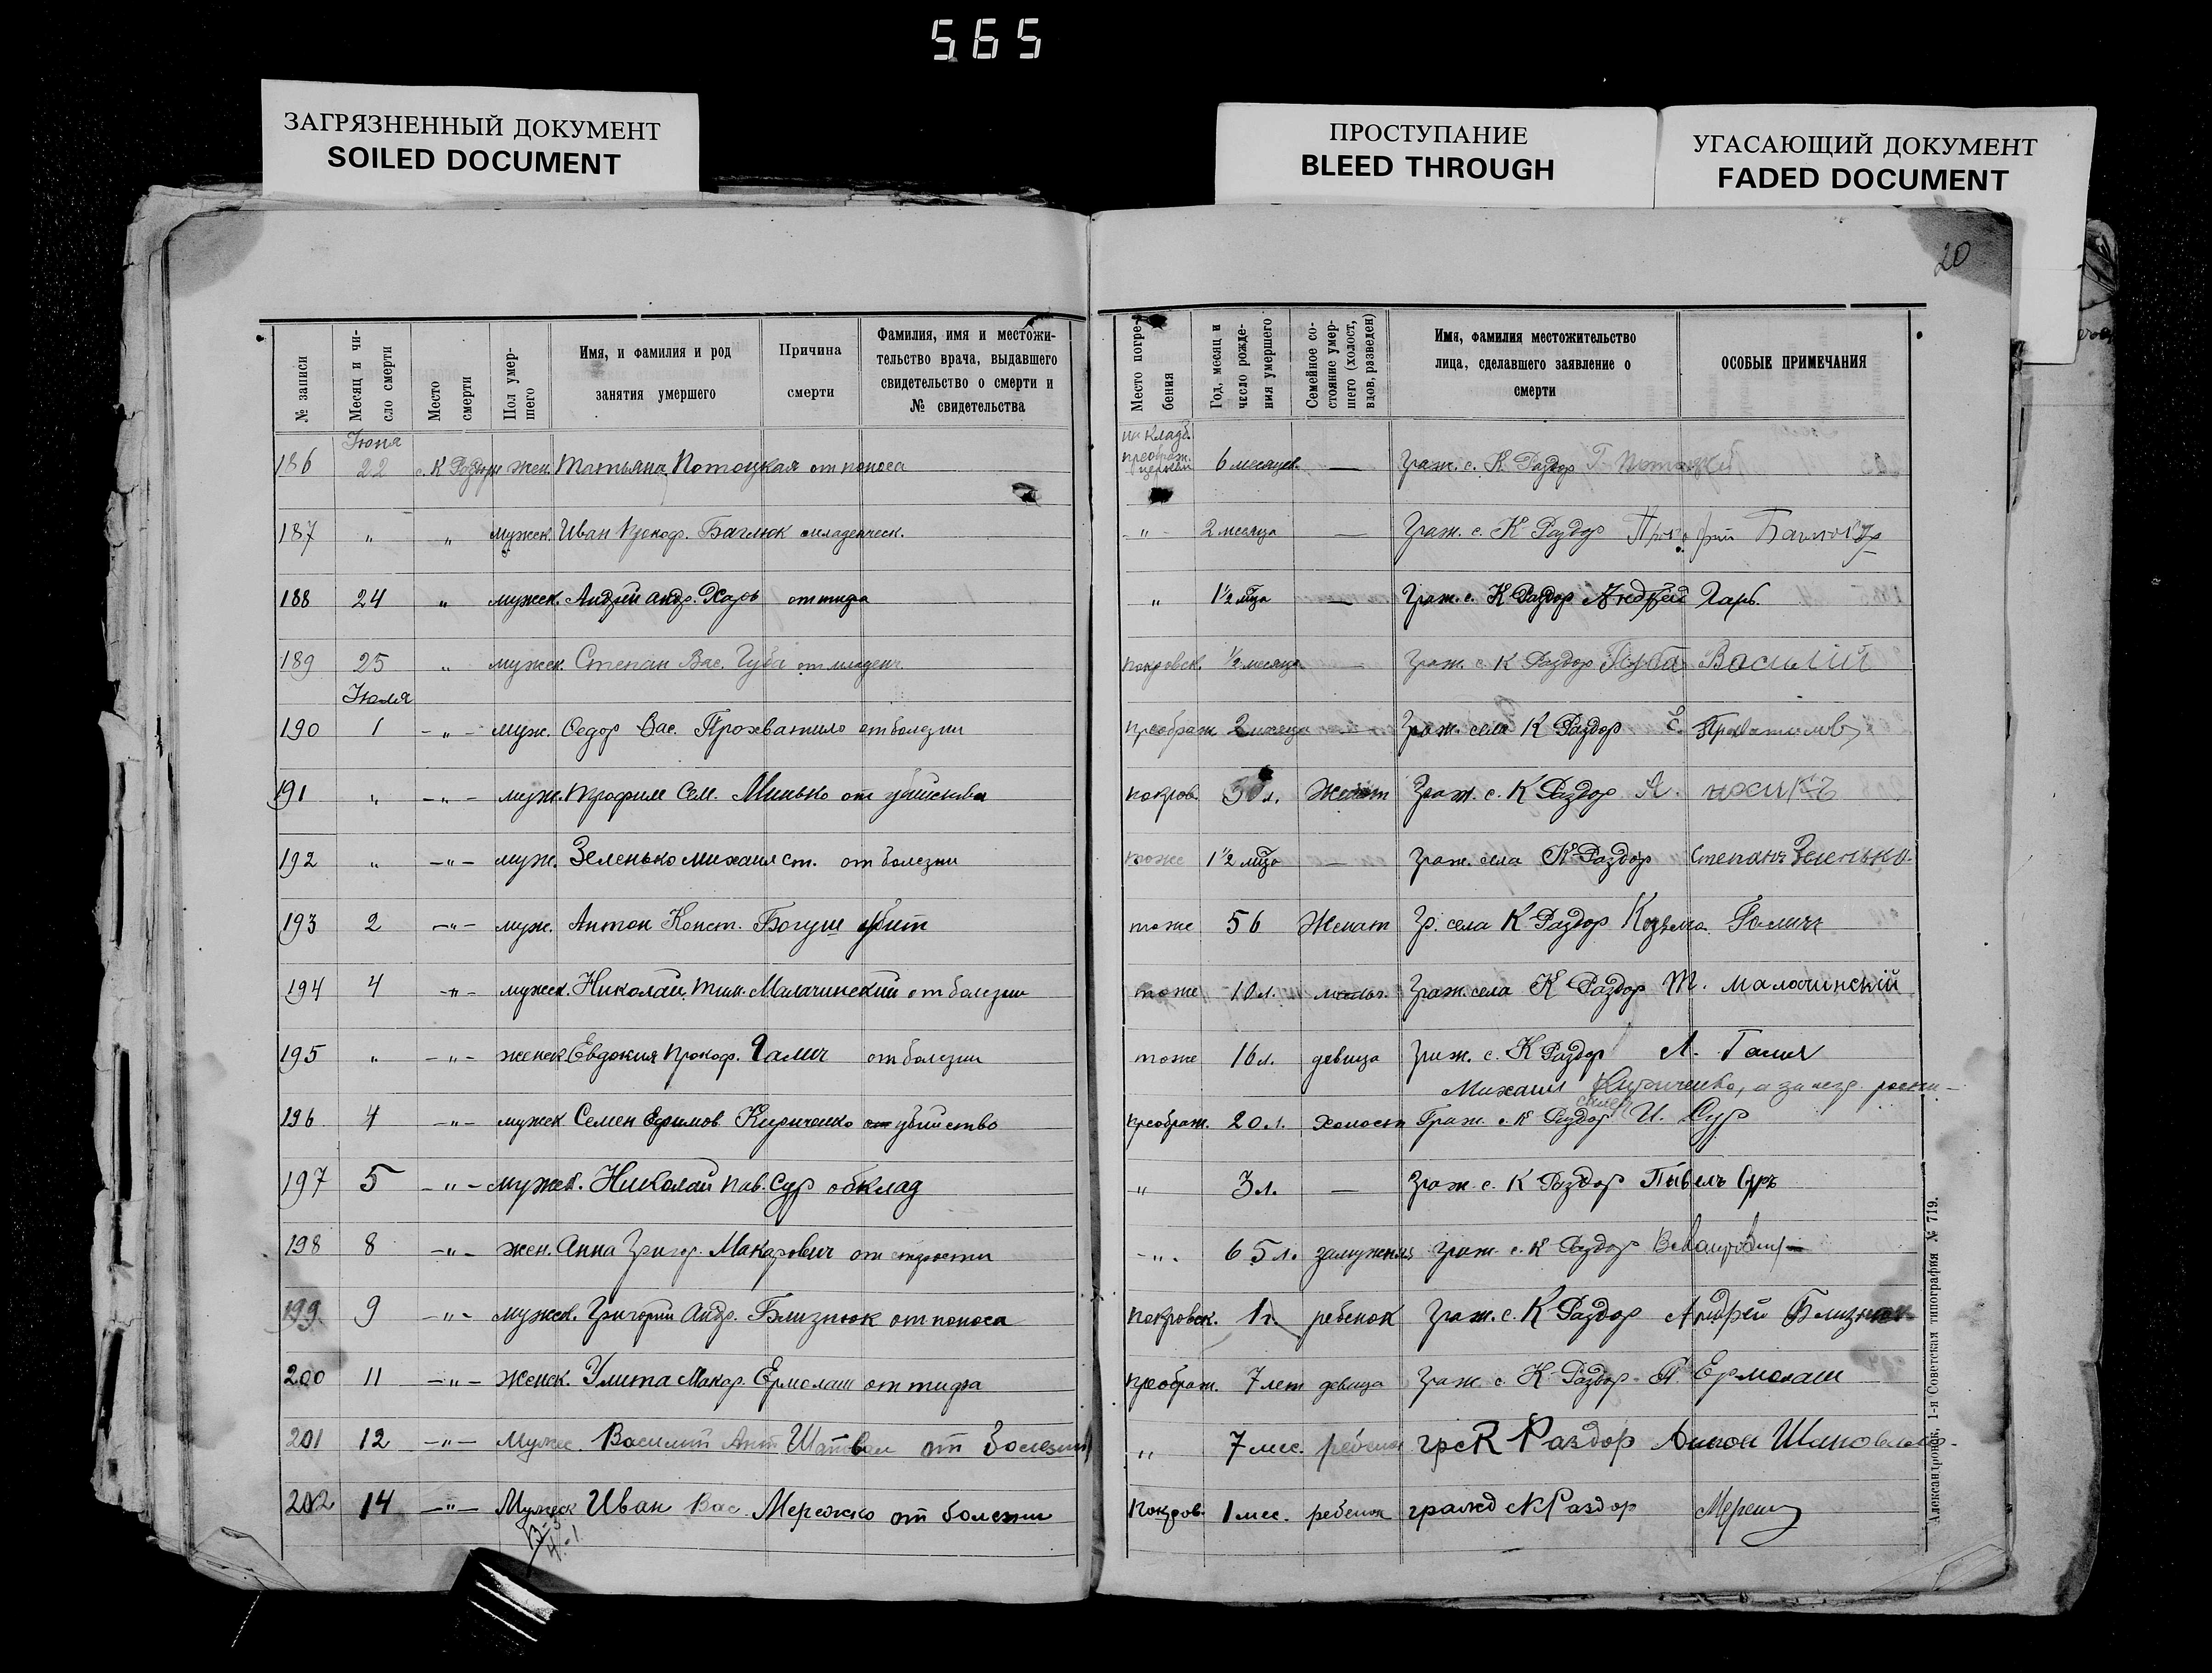 565
ЗАГРЯЗНЕННЫЙ ДОКУМЕНТ
SOILED DOCUMENT
ПРОСТУПАНИЕ
BLEED THROUGH
УГАСАЮЩИЙ ДОКУМЕНТ
FADED DOCUMENT
20
№ записи
Месяц и чи-
сло смерти
Место
смерти
Пол умер-
шего
Имя, и фамилия и род
занятия умершего
Причина
смерти
Фамилия, имя и местожи-
тельство врача, выдавшего
свидетельство о смерти и
№ свидетельства
Место погре-
бения
Год, месяц и
число рожде-
ния умершего
Семейное со-
стояние умер-
шего (холост,
вдов, разведен)
Имя, фамилия местожительство
лица, сделавшего заявление о
смерти
ОСОБЫЕ ПРИМЕЧАНИЯ
Июня
на кладб.
преображ.
церкви
186 22 с. К Раздоры жен. Татьяна Потоцкая от поноса 6 месяцев — Граж. с. К Раздор Г.
187 " " мужск. Иван Прокоф. Баглюк младенческ. - " - 2 месяца — Граж. с. К Раздор Прокофий
188 24 " мужск. Андрей Андр. Харь от тифа " 1½ м-ца — Граж. с. К Раздор Андрей Харь.
189 25 " мужск. Степан Вас. Губа от младенч. покровск. ½ месяца — Граж. с К Раздор Губа Василий
Июля
190 1 - " - муж. Федор Вас. Прохватило от болезни преображ. 2 месяца — Граж. села К Раздор
191 " - " - муж. Трофим Сем. Минько от убийства покров. л. Женат Граж. с. К Раздор А.
192 " - " - муж. Зеленько Михаил Ст. от болезни тоже 1½ м-ца — Граж. села К Раздор Степанъ Зенько.
193 2 - " - муж. Антон Конст. Богуш убит тоже 56 Женат Гр. села К Раздор Козьма Галичъ
194 4 - " - мужск. Николай Тим. Малачинский от болезни тоже 10 л. мальч. Граж. села К Раздор Т. Малочинскій
195 " - " - женск Евдокия Прокоф. Галич от болезни тоже 16 л. девица Граж. с. К Раздор Л. Галич
Михаил Кириченко, а за негр.
196 4 - " - мужск Семен Ефимов Кириченко от убийство преображ. 20 л. холост Граж. с К Раздор И. Сур
197 5 - " - мужск. Николай Пав. Сур обклад " 3 л. — Граж. с. К Раздор Павелъ Суръ
198 8 - " - жен. Анна Григор. Макарович от старости - " - 65 л. замужняя Граж. с. К Раздор
199 9 - " - мужск. Григорий Андр. Близнюк от поноса Покровск. 1 г. ребенок Граж. с. К Раздор Андрей Близнюк
200 11 - " - женск. Улита Макар. Ермолаш от тифа преображ. 7 лет девица Граж. с. К Раздор Ермолаш
201 12 - " - Мужс. Василий Ант от болезни " 7 мес. ребенок гр с К Раздор Антон
202 14 - " - Мужск Иван Вас Мережко от болезни Покров. 1 мес. ребенок гражд с К Раздор
Александровск, 1-я Советская типография № 719.